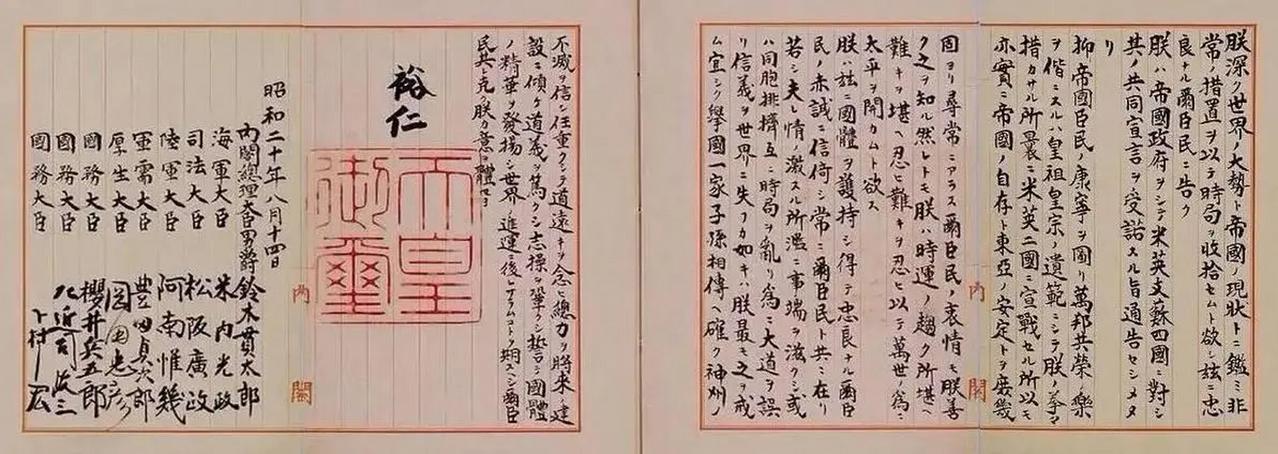 朕深ク世界ノ大勢ト帝國ノ現狀トニ鑑ミ非
常ノ措置ヲ以テ時局ヲ收拾セムト欲シ茲ニ忠
良ナル爾臣民ニ告ク
朕ハ帝國政府ヲシテ米英支蘇四國ニ對シ
其ノ共同宣言ヲ受諾スル旨通告セシメタ
リ
抑〻帝國臣民ノ康寧ヲ圖リ萬邦共榮ノ樂
ヲ偕ニスルハ皇祖皇宗ノ遺範ニシテ朕ノ拳々
措カサル所曩ニ米英二國ニ宣戰セル所以モ
亦實ニ帝國ノ自存ト東亞ノ安定トヲ庶幾
内閣
固ヨリ尋常ニアラス爾臣民ノ衷情モ朕善
ク之ヲ知ル然レトモ朕ハ時運ノ趨ク所堪ヘ
難キヲ堪ヘ忍ヒ難キヲ忍ヒ以テ萬世ノ爲ニ
太平ヲ開カムト欲ス
朕ハ茲ニ國體ヲ護持シ得テ忠良ナル爾臣
民ノ赤誠ニ信倚シ常ニ爾臣民ト共ニ在リ
若シ夫レ情ノ激スル所濫ニ事端ヲ滋クシ或
ハ同胞排擠互ニ時局ヲ亂リ爲ニ大道ヲ誤
リ信義ヲ世界ニ失フカ如キハ朕最モ之ヲ戒
ム宜シク擧國一家子孫相傳ヘ確ク神州ノ
不滅ヲ信シ任重クシテ道遠キヲ念ヒ總力ヲ將來ノ建
設ニ傾ケ道義ヲ篤クシ志操ヲ鞏クシ誓テ國體
ノ精華ヲ發揚シ世界ノ進運ニ後レサラムコトヲ期スヘシ爾臣
民其レ克ク朕カ意ヲ體セヨ
裕仁
天皇
御璽
内閣
昭和二十年八月十四日
内閣總理大臣男爵 鈴木貫太郎
海軍大臣 米内光政
司法大臣 松阪廣政
陸軍大臣 阿南惟幾
軍需大臣 豊田貞次郎
厚生大臣 岡田忠彦
國務大臣 櫻井兵五郎
國務大臣 左近司政三
國務大臣 下村宏